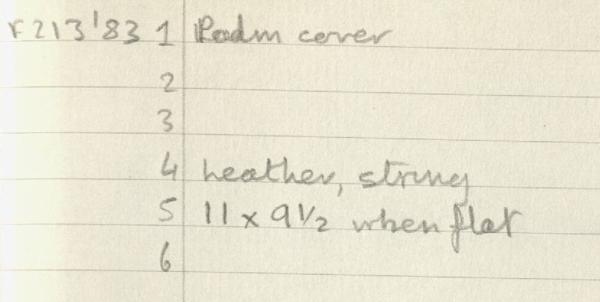 F213'83 1 cover
2
3
4 heather, string
5 11 x 9 1/2 when flat
6